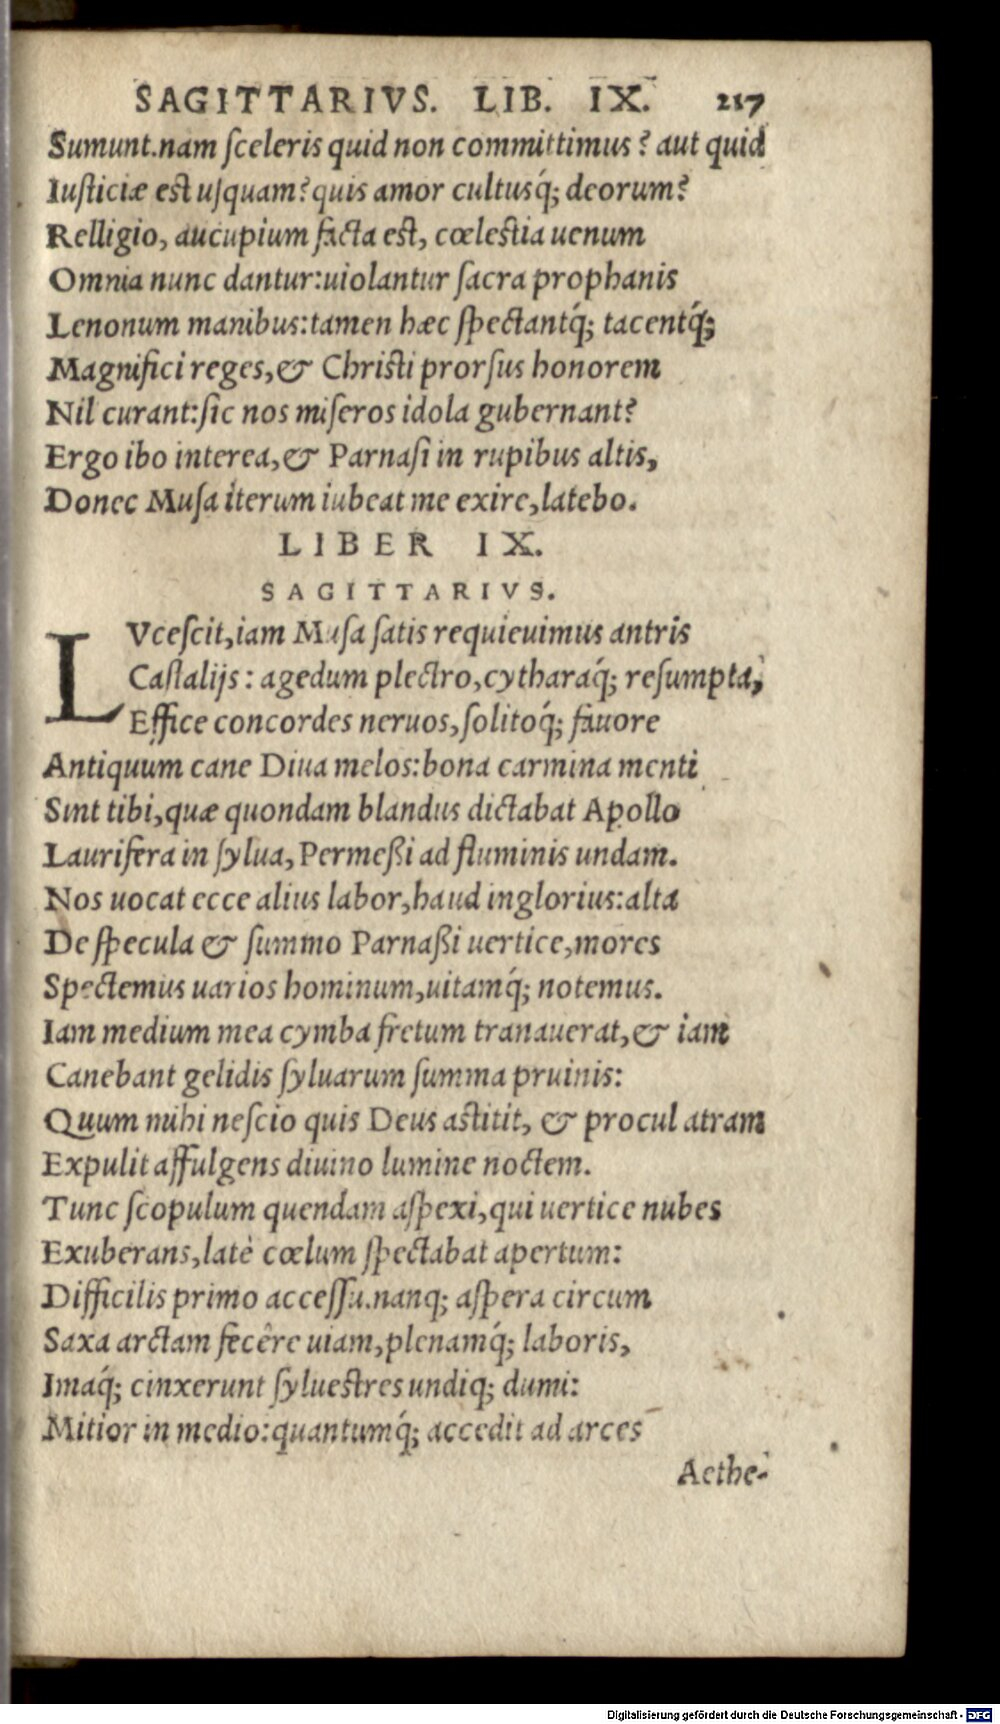 SAGITTARIVS. LIB. IX. 217
Sumunt.nam ſceleris quid non committimus? aut quid
Iuſticiæ est uſquam? quis amor cultusq́; deorum?
Relligio, aucupium facta est, cœlestia uenum
Omnia nunc dantur:uiolantur ſacra prophanis
Lenonum manibus:tamen hæc ſpectantq́; tacentq́;
Magnifici reges,& Christi prorſus honorem
Nil curant:ſic nos miſeros idola gubernant?
Ergo ibo interea,& Parnaſi in rupibus altis,
Donec Muſa iterum iubeat me exire,latebo.
LIBER IX.
SAGITTARIVS.
LVceſcit,iam Muſa ſatis requieuimus antris
Caſtalijs: agedum plectro,cytharaq́; reſumpta,
Effice concordes neruos,ſolitoq́; fauore
Antiquum cane Diua melos:bona carmina menti
Sint tibi,quæ quondam blandus dictabat Apollo
Laurifera in ſylua, Permeßi ad fluminis undam.
Nos uocat ecce alius labor,haud inglorius:alta
De ſpecula & ſummo Parnaßi uertice,mores
Spectemus uarios hominum,uitamq́; notemus.
Iam medium mea cymba fretum tranauerat,& iam
Canebant gelidis ſyluarum ſumma pruinis:
Quum mihi neſcio quis Deus astitit, & procul atram
Expulit affulgens diuino lumine noctem.
Tunc ſcopulum quendam aſpexi,qui uertice nubes
Exuberans,latè cœlum ſpectabat apertum:
Difficilis primo acceſſu.nanq; aſpera circum
Saxa arctam fecêre uiam,plenamq́; laboris,
Imaq́; cinxerunt ſyluestres undiq; dumi:
Mitior in medio:quantumq́; accedit ad arces
Aethe-
Digitalisierung gefördert durch die Deutsche Forschungsgemeinschaft - DFG